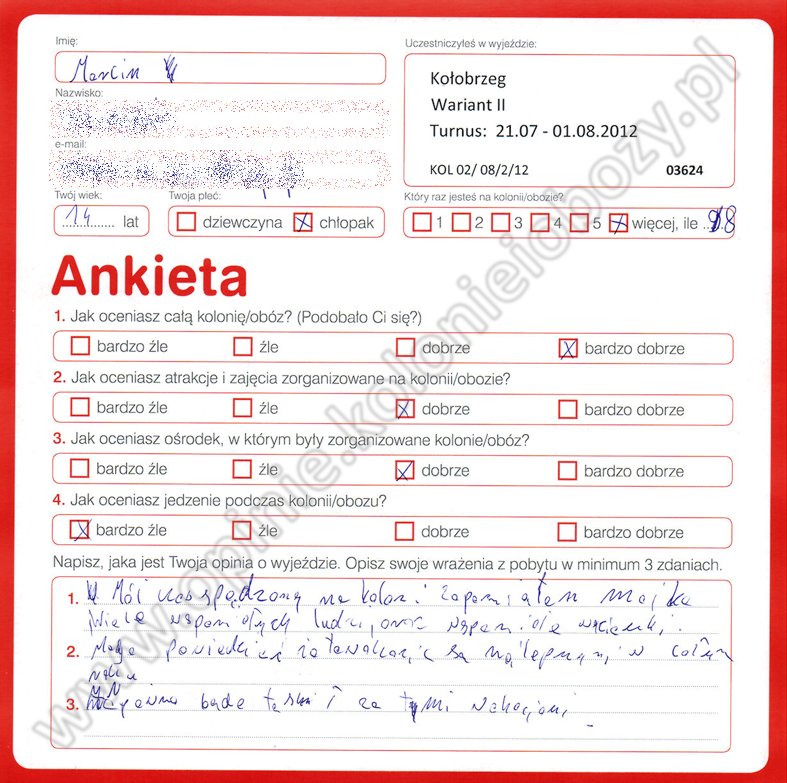 Imię:
Marcin
Nazwisko:
e-mail:
Twój wiek:
14 lat
Twoja płeć:
dziewczyna chłopak
Uczestniczyłeś w wyjeździe:
Kołobrzeg
Wariant II
Turnus: 21.07 - 01.08.2012
KOL 02/ 08/2/12 03624
Który raz jesteś na kolonii/obozie?
1 2 3 4 5 więcej, ile 8
Ankieta
1. Jak oceniasz całą kolonię/obóz? (Podobało Ci się?)
bardzo źle źle dobrze bardzo dobrze
2. Jak oceniasz atrakcje i zajęcia zorganizowane na kolonii/obozie?
bardzo źle źle dobrze bardzo dobrze
3. Jak oceniasz ośrodek, w którym były zorganizowane kolonie/obóz?
bardzo źle źle dobrze bardzo dobrze
4. Jak oceniasz jedzenie podczas kolonii/obozu?
bardzo źle źle dobrze bardzo dobrze
Napisz, jaka jest Twoja opinia o wyjeździe. Opisz swoje wrażenia z podbytu w minimum 3 zdaniach.
1. Mój czas spędzony na koloni
wiele ludzi, oraz
2. Mogę powiedzieć że są w
3. będe za tymi wakacjami
www.opinie.kolonieiobozy.pl